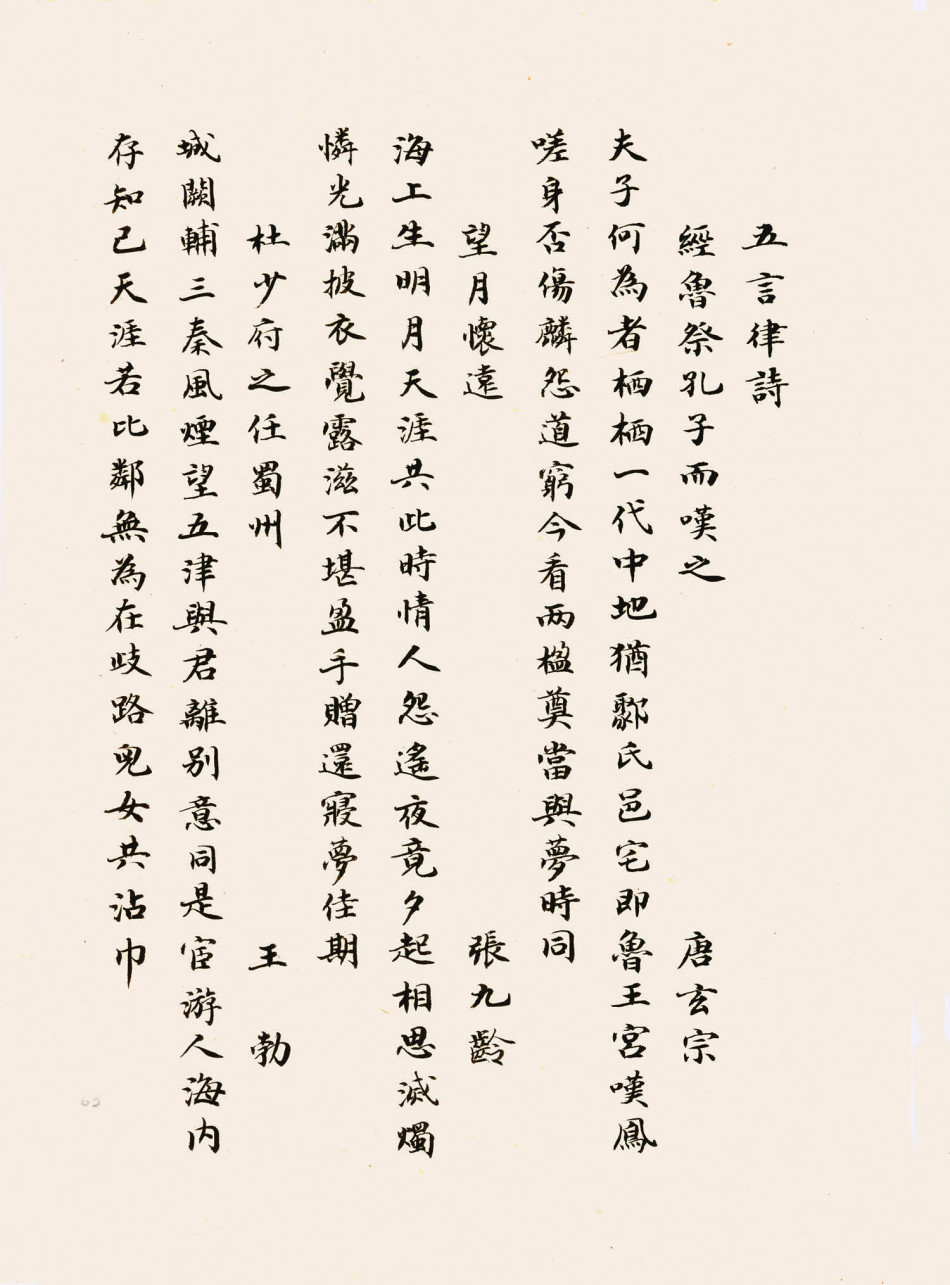 五言律詩
經魯祭孔子而嘆之 唐玄宗
夫子何為者栖栖一代中地猶鄹氏邑宅即魯王宮嘆鳳
嗟身否傷麟怨道窮今看兩楹奠當與夢時同
望月懷遠 張九齡
海上生明月天涯共此時情人怨遙夜竟夕起相思滅燭
憐光滿披衣覺露滋不堪盈手贈還寢夢佳期
杜少府之任蜀州 王勃
城闕輔三秦風煙望五津與君離別意同是宦游人海內
存知己天涯若比鄰無為在歧路兒女共沾巾